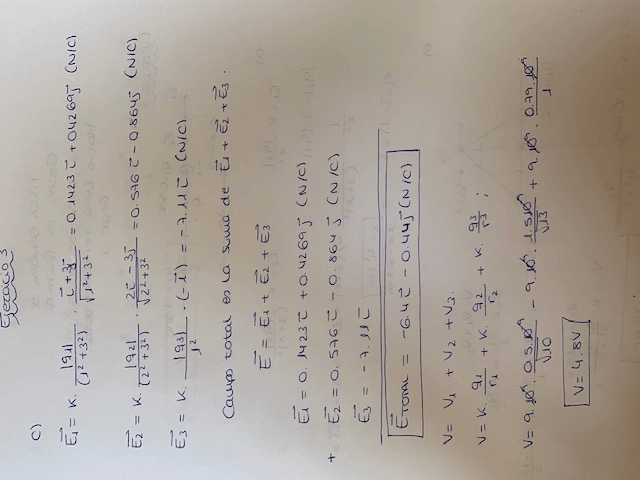 Ejercicio 3
c)
E⃗1 = K. |q1|/(1²+3²) · (i⃗ + 3j⃗)/√(1²+3²) = 0.1423 i⃗ + 0.4269 j⃗ (N/C)
E⃗2 = K. |q2|/(2²+3²) · (2i⃗ - 3j⃗)/√(2²+3²) = 0.576 i⃗ - 0.864 j⃗ (N/C)
E⃗3 = K. |q3|/1² · (-i⃗) = -7.11 i⃗ (N/C)
Campo total es la suma de E⃗1 + E⃗2 + E⃗3.
E⃗ = E⃗1 + E⃗2 + E⃗3
E⃗1 = 0.1423 i⃗ + 0.4269 j⃗ (N/C)
+ E⃗2 = 0.576 i⃗ - 0.864 j⃗ (N/C)
E⃗3 = -7.11 i⃗
E⃗TOTAL = -6.4 i⃗ - 0.44 j⃗ (N/C)
V = V1 + V2 + V3.
V = K. q1/r1 + K. q2/r2 + K. q3/r3 ;
V = 9.10⁹. 0.5.10⁻⁹/√10 - 9.10⁹. 1.5.10⁻⁹/√13 + 9.10⁹. 0.79.10⁻⁹/1
V = 4.8V